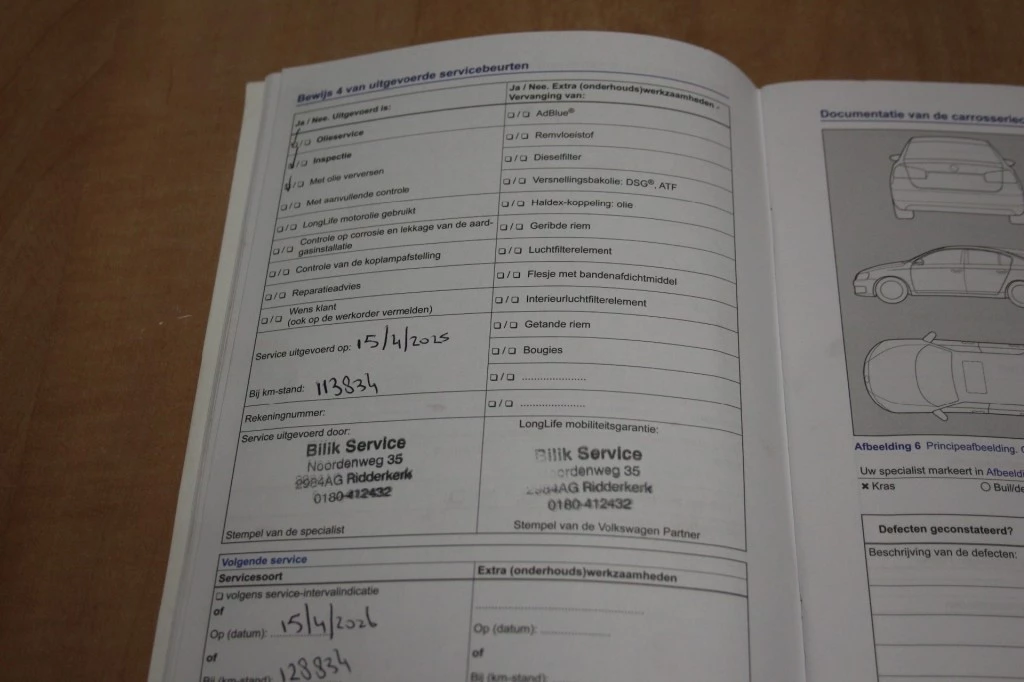 Bewijs 4 van uitgevoerde servicebeurten
Ja / Nee. Uitgevoerd is:
❑/❑ Olieservice
❑/❑ Inspectie
❑/❑ Met olie verversen
❑/❑ Met aanvullende controle
❑/❑ LongLife motorolie gebruikt
❑/❑ Controle op corrosie en lekkage van de aard-
gasinstallatie
❑/❑ Controle van de koplampafstelling
❑/❑ Reparatieadvies
❑/❑ Wens klant
(ook op de werkorder vermelden)
Service uitgevoerd op: 15/4/2025
Bij km-stand: 113834
Rekeningnummer:
Service uitgevoerd door:
Bilik Service
Noordenweg 35
2984AG Ridderkerk
0180-412432
Stempel van de specialist
Ja / Nee. Extra (onderhouds)werkzaamheden -
Vervanging van:
❑/❑ AdBlue®
❑/❑ Remvloeistof
❑/❑ Dieselfilter
❑/❑ Versnellingsbakolie: DSG®, ATF
❑/❑ Haldex-koppeling: olie
❑/❑ Geribde riem
❑/❑ Luchtfilterelement
❑/❑ Flesje met bandenafdichtmiddel
❑/❑ Interieurluchtfilterelement
❑/❑ Getande riem
❑/❑ Bougies
❑/❑ .....................
❑/❑ .....................
LongLife mobiliteitsgarantie:
Bilik Service
Noordenweg 35
2984AG Ridderkerk
0180-412432
Stempel van de Volkswagen Partner
Volgende service
Servicesoort
❑ volgens service-intervalindicatie
of
Op (datum): 15/4/2026
of
Bij (km-stand): 128834
Extra (onderhouds)werkzaamheden
Op (datum): .....................
of
Bij (km-stand):
Documentatie van de
Afbeelding 6 Principeafbeelding.
Uw specialist markeert in
× Kras
Defecten geconstateerd?
Beschrijving van de defecten: